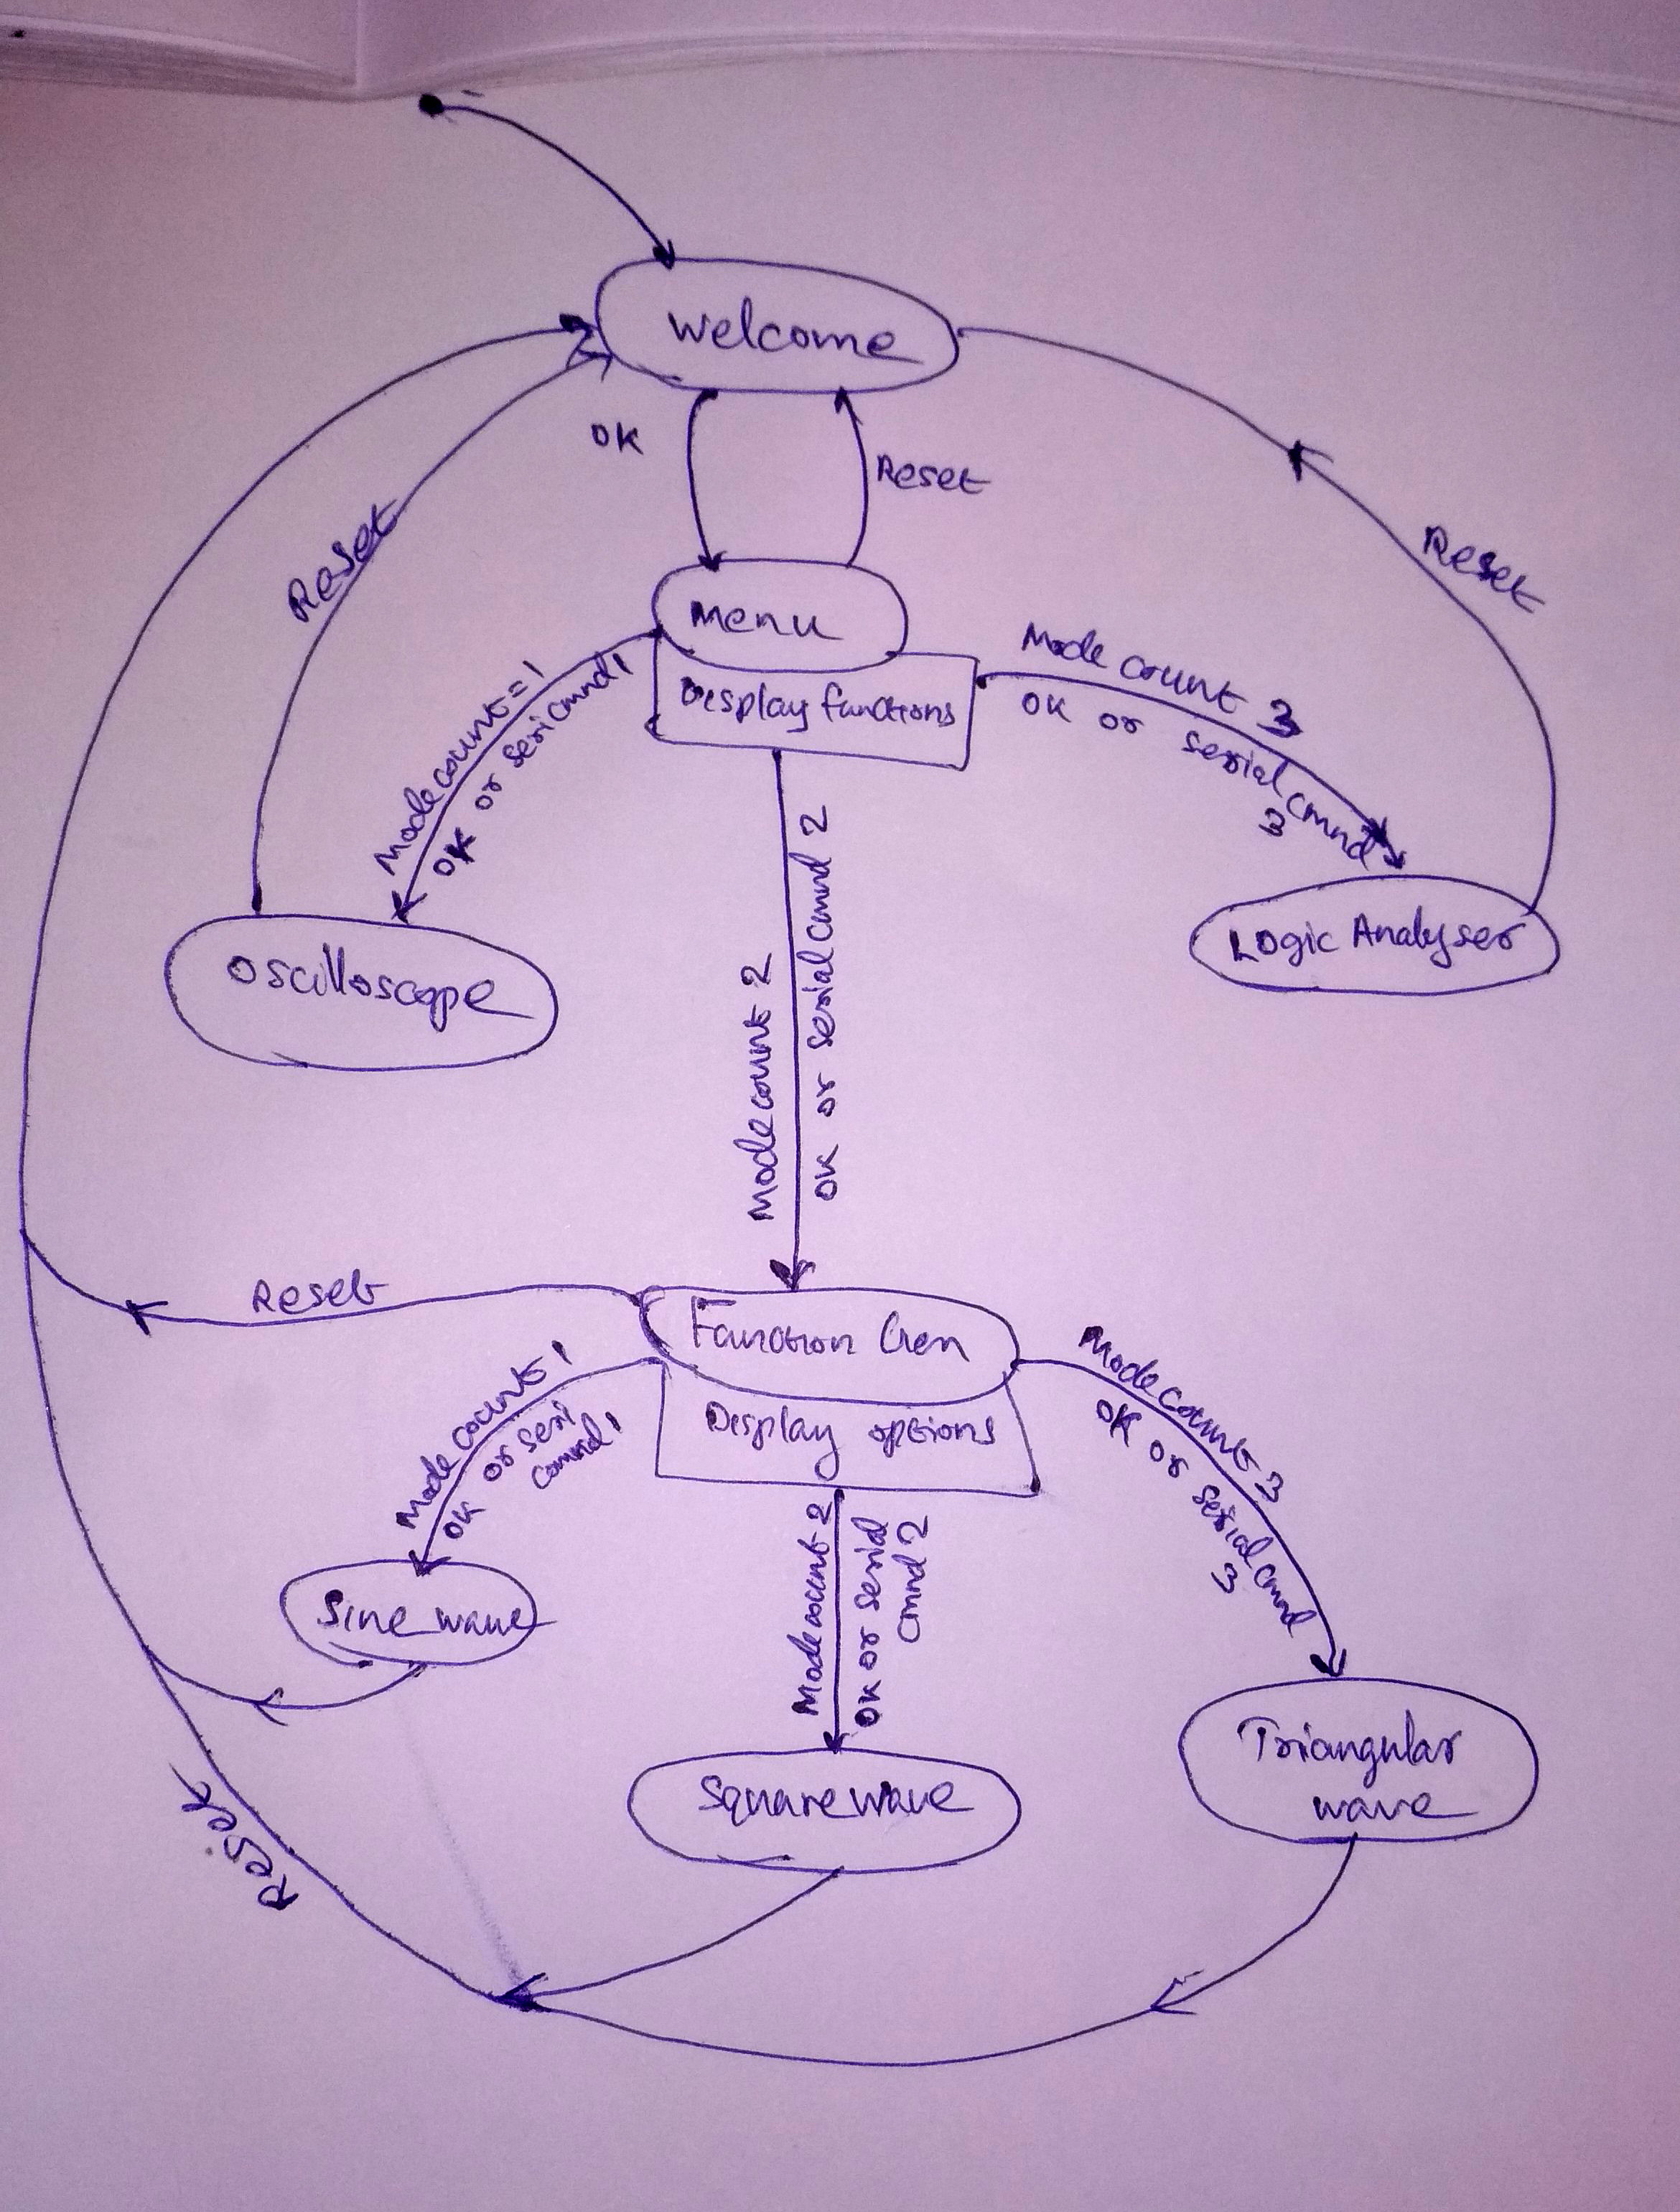 Welcome
OK
Reset
Reset
Reset
Menu
Display functions
Mode count = 1
OK or seri cmnd 1
Mode count 3
OK or serial cmnd
3
Mode count 2
OK or serial cmnd 2
Oscilloscope
Logic Analyser
Reset
Function Gen
Display options
Mode count 1
OK or seri
cmnd 1
Mode count 2
OK or serial
cmnd 2
Mode count 3
OK or serial cmnd
3
Sine wave
Square wave
Triangular
wave
Reset